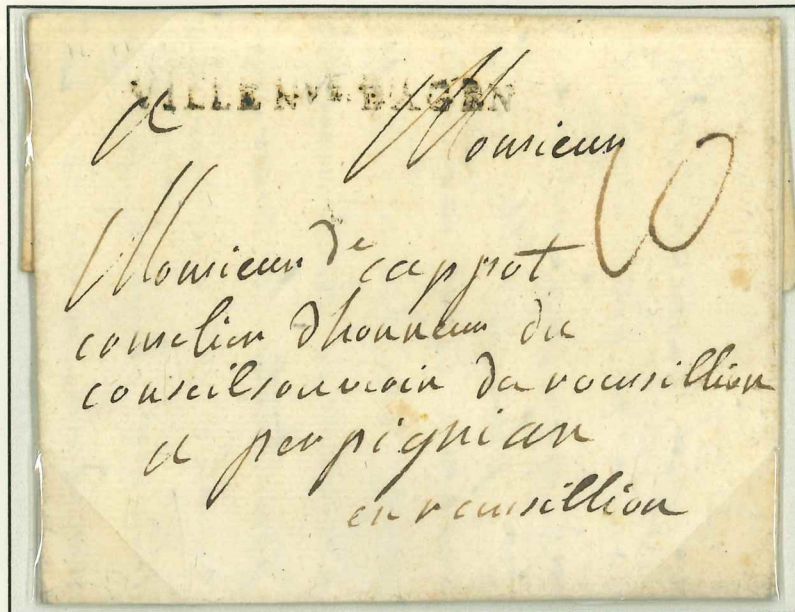 VILLE NVE. D'AGEN
a Monsieur
10
Monsieur de cappot
conselier dhonneur du
conseilsouverain du roussillion
a perpignian
en roussillion